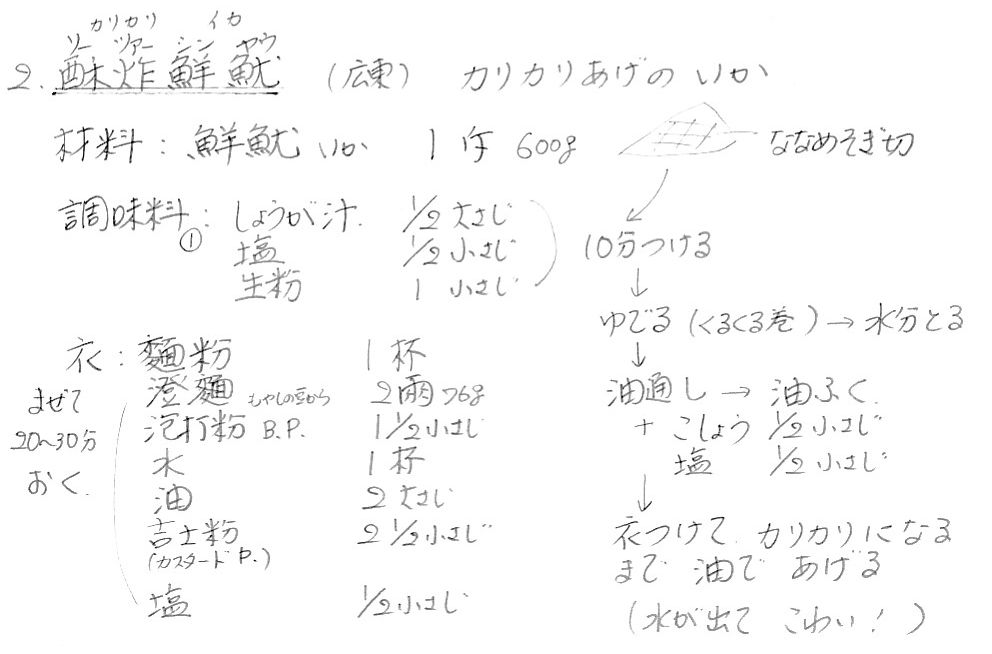 カリカリ イカ
ソー ツァー シン ヤウ
2. 酥炸鮮魷 (広東) カリカリあげの いか
材料: 鮮魷 いか 1斤 600g ななめそぎ切
調味料①: しょうが汁. 1/2 大さじ
塩 1/2 小さじ
生粉 1 小さじ
10分つける
ゆでる (くるくる巻) → 水分とる
油通し → 油ふく.
+ こしょう 1/2 小さじ
塩 1/2 小さじ
衣つけて カリカリになる
まで 油で あげる
(水が出て こわい! )
衣: 麵粉 1杯
澄麵 もやしの豆から 2両 76g
泡打粉 B.P. 1 1/2小さじ
水 1杯
油 2 大さじ
吉士粉 2 1/2小さじ
(カスタード P.)
塩 1/2小さじ
まぜて
20~30分
おく.